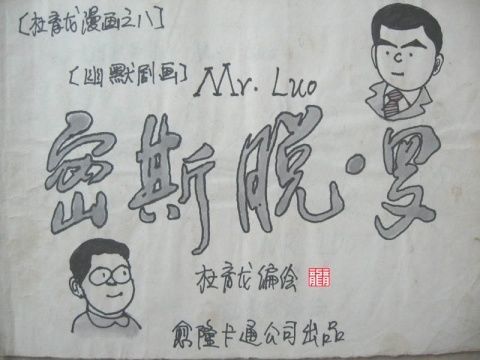 [杜育龙漫画之八]
[幽默剧画] Mr. Luo
密斯脱·罗
杜育龙编绘 龍
愈隆卡通公司出品